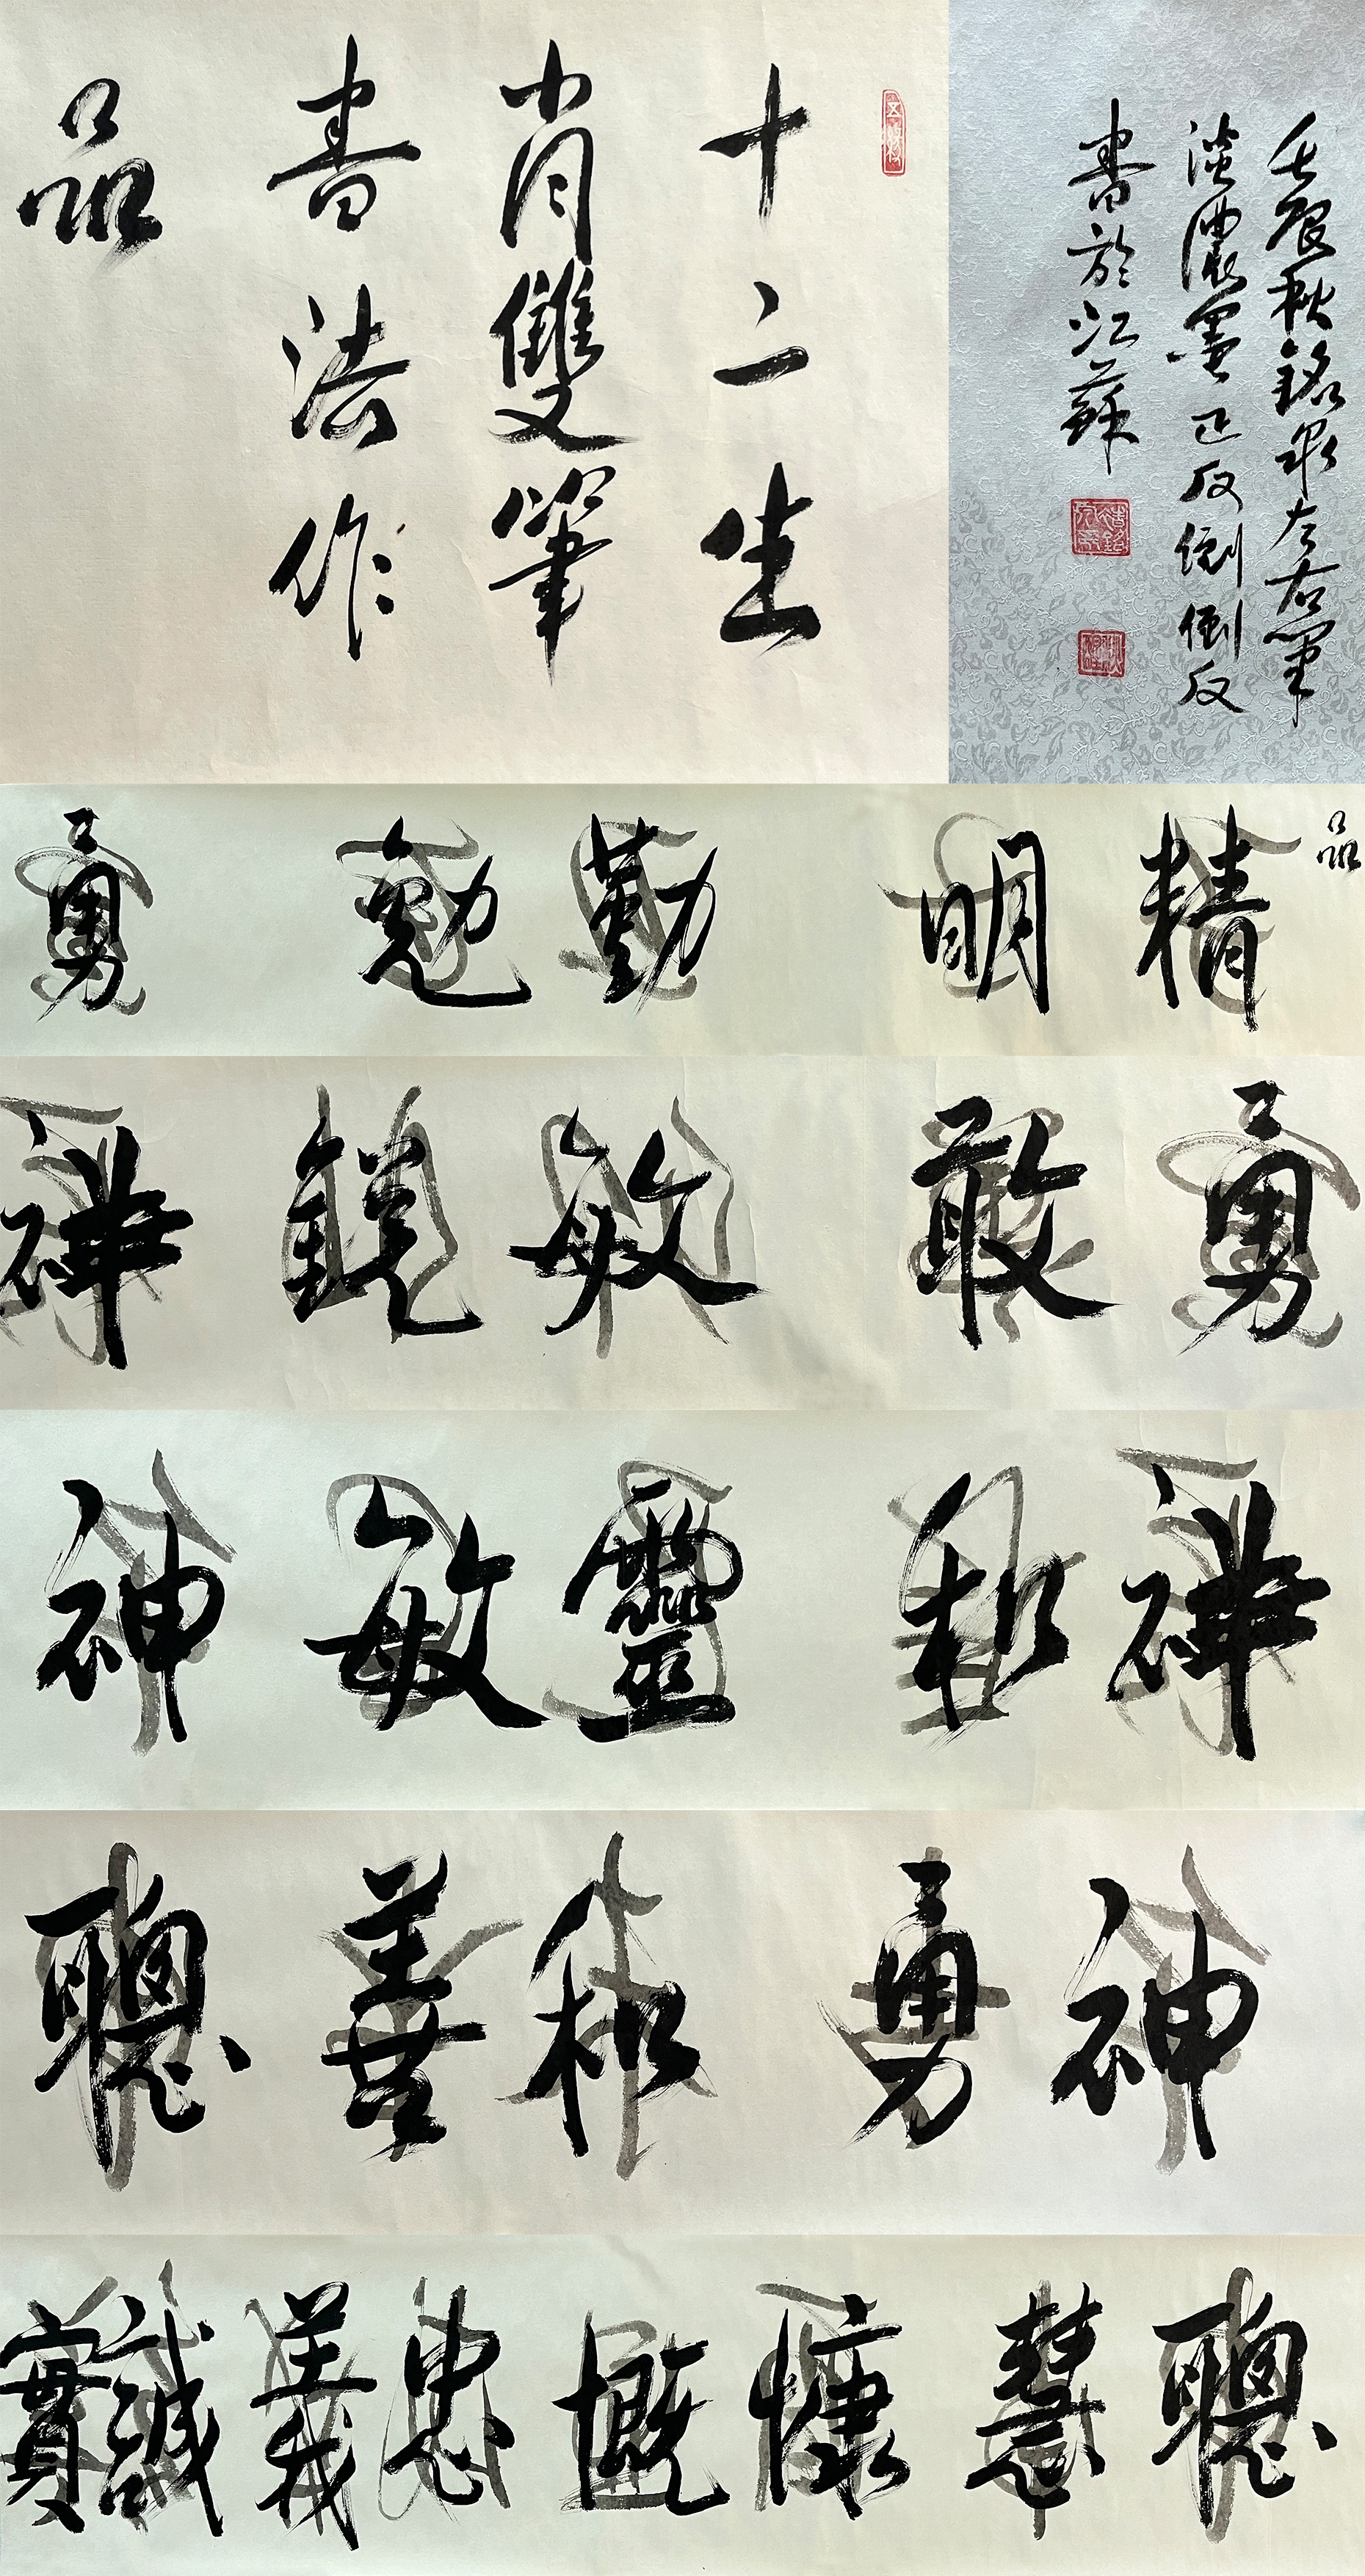 十二生
肖雙筆
書法作
品
壬辰秋銘泉左右筆
淡濃墨正反倒倒反
書於江蘇
品
精明 勤勉 勇
勇敢 敏銳 禪
禪和 靈敏 神
神勇 和善 聰
聰慧 慷慨 忠義 誠實